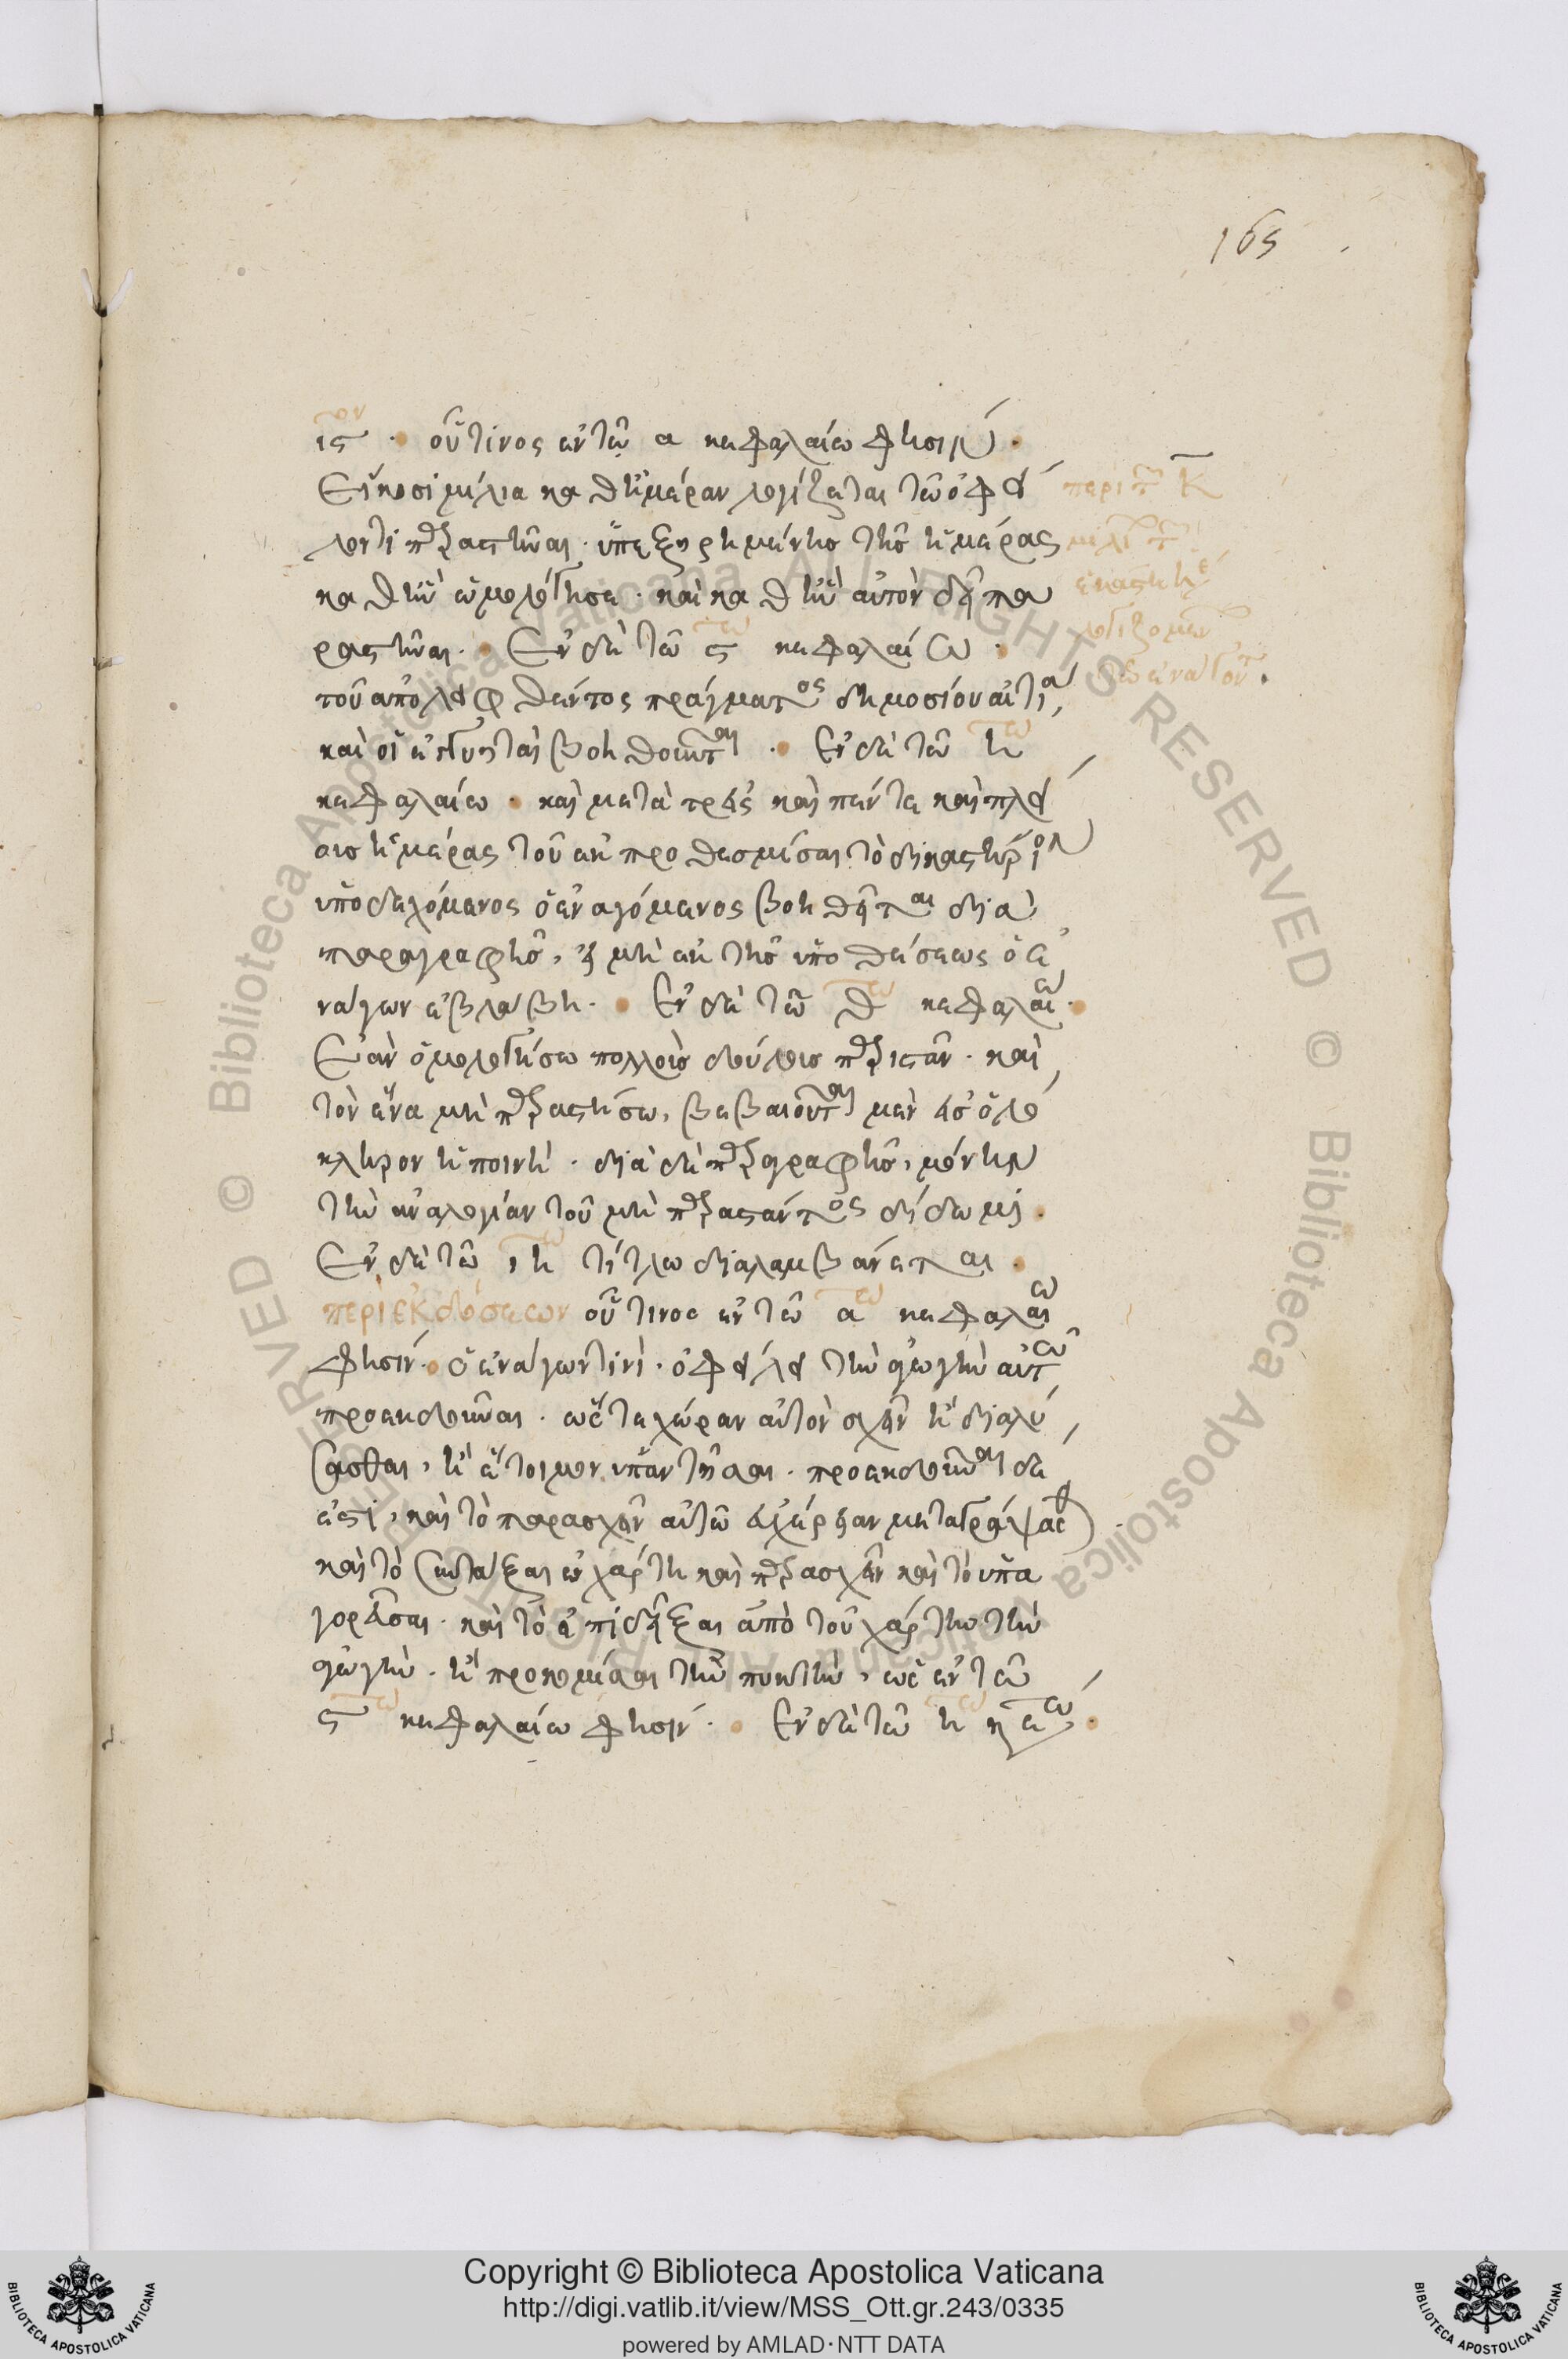 165
ιϛον · οὗτινος ἐν τῶ α κεφαλαίω φησίν ·
Εἴκοσι μίλια καθ' ἡμέραν λογίζεται τῶ ὀφεί
λοντι παραστῆναι · ὑπεξηρημένης τῆς ἡμέρας
καθ' ἣν ὡμολόγησε · καὶ καθ' ἣν αὐτὸν δεῖ πα
ραστῆναι · Ἐν δὲ τῶ ϛτω κεφαλαίω ·
τοῦ ἀπολειφθέντος πράγματος δημοσίου αἰτία,
καὶ οἱ ἐγγυηταὶ βοηθοῦνται · Ἐν δὲ τῶ ητω
κεφαλαίω · καὶ μετὰ τρεῖς καὶ πέντε καὶ πλεί
οις ἡμέρας τοῦ ἐκπροθεσμίσαι τὸ δικαστήριον
ὑποδεχόμενος ὁ ἐναγόμενος βοηθεῖται διὰ
παραγραφῆς, εἰ μὴ ἐκ τῆς ὑποθέσεως ὁ ἐ
νάγων ἐβλάβη · Ἐν δὲ τῶ θτω κεφαλαίω ·
Ἐὰν ὁμολογήσω πολλοὺς δούλους παριστᾶν · καὶ
τὸν ἕνα μὴ παραστήσω, βεβαιοῦται μὲν εἰς ὁλό
κληρον ἡ ποινή · διὰ δὲ παραγραφῆς, μόνην
τὴν ἀναλογίαν τοῦ μὴ παραστάντος δίδωμι ·
Ἐν δὲ τῶ ιητω τίτλω διαλαμβάνεται ·
περὶ ἐκδόσεων οὗτινος ἐν τῶ ατω κεφαλαίω
φησίν · ὁ ἐνάγων τινὶ · ὀφείλει τὴν ἀγωγὴν αὐτῶ
προεκδοῦναι · ὥστε χώραν αὐτὸν σχεῖν ἢ διαλύ
σασθαι, ἢ ἕτοιμον ὑπαντῆσαι · προεκδοῦναι δέ
ἐστι, καὶ τὸ παρασχεῖν αὐτῶ εὐχέρειαν μεταγράψασθαι ·
καὶ τὸ συντάξαι ἐν χάρτη καὶ παρασχεῖν καὶ τὸ ὑπα
γορεῦσαι · καὶ τὸ ἐπιδεῖξαι ἀπὸ τοῦ χάρτου τὴν
ἀγωγὴν · ἢ προκομίσαι τὴν ποινὴν, ὡς ἐν τῶ
ϛτω κεφαλαίω φησίν · Ἐν δὲ τῶ η κεφαλαίω ·
περὶ τῶν κ
μιλίων τῶν
ἑκάστη ἡμέρᾳ
λογιζομένων
τῶ ἐνάγοντι ·
Copyright © Biblioteca Apostolica Vaticana
http://digi.vatlib.it/view/MSS_Ott.gr.243/0335
powered by AMLAD·NTT DATA
BIBLIOTECA APOSTOLICA VATICANA
BIBLIOTECA APOSTOLICA VATICANA